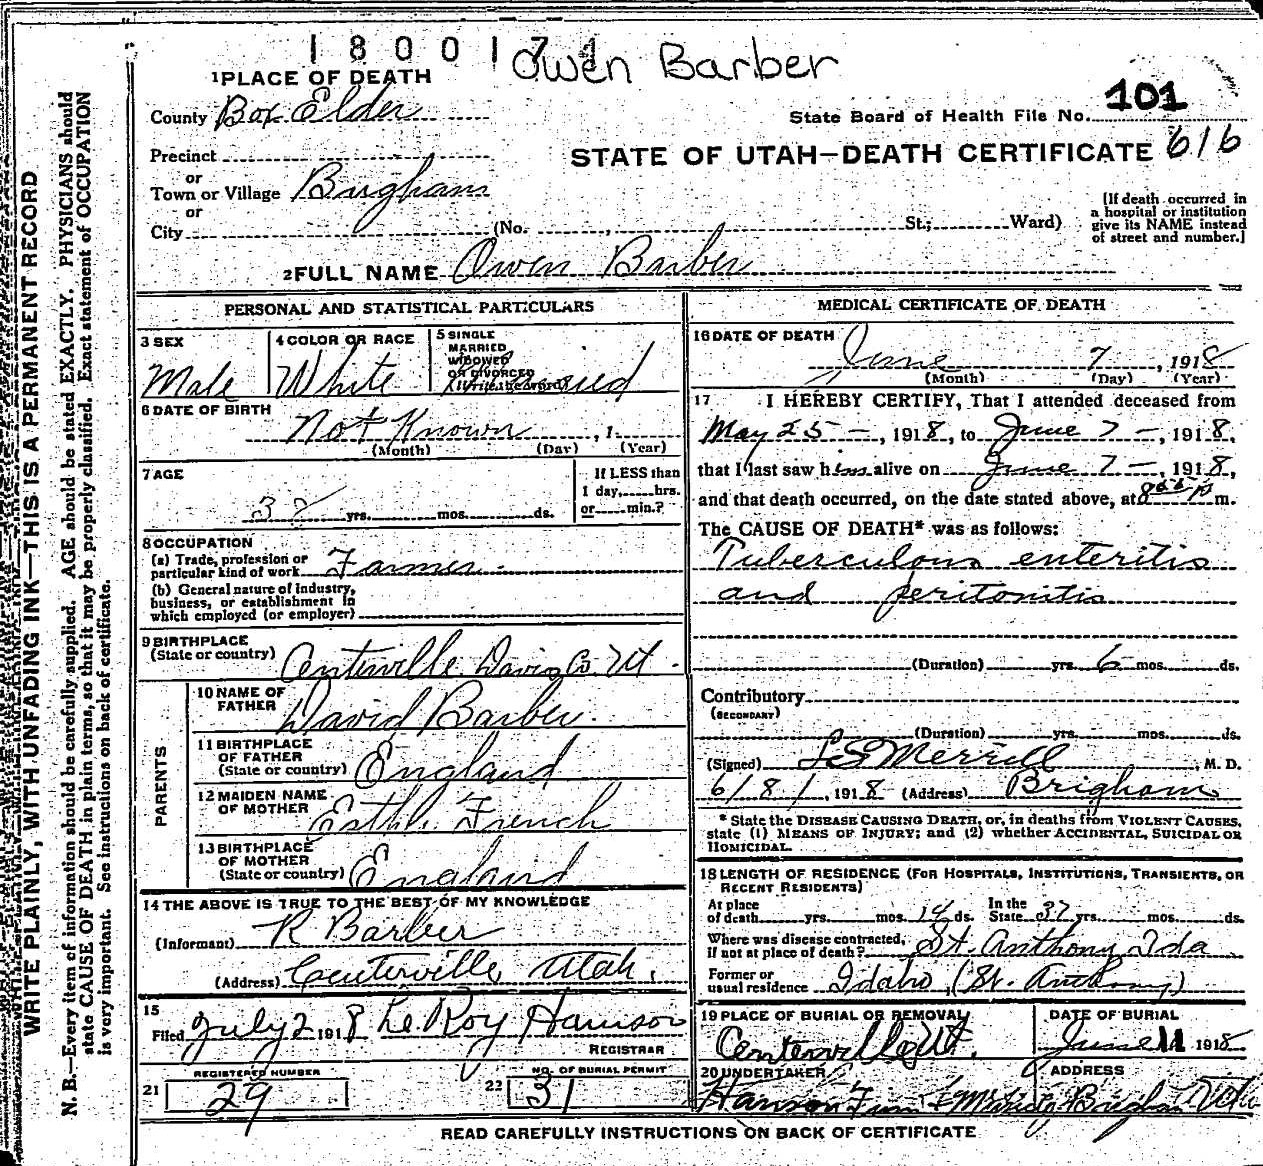 1800174
Owen Barber
1 PLACE OF DEATH
County Box Elder
State Board of Health File No. 101
Precinct
STATE OF UTAH—DEATH CERTIFICATE 616
or
Town or Village Brigham
or
City (No. , St.; Ward)
[If death occurred in
a hospital or institution
give its NAME instead
of street and number.]
2 FULL NAME Owen Barber
PERSONAL AND STATISTICAL PARTICULARS
3 SEX
Male
4 COLOR OR RACE
White
5 SINGLE
MARRIED
WIDOWED
OR DIVORCED
(Write the word)
6 DATE OF BIRTH
Not Known , 1
(Month) (Day) (Year)
7 AGE
yrs. mos. ds.
If LESS than
1 day, hrs.
or min.?
8 OCCUPATION
(a) Trade, profession or
particular kind of work Farmer
(b) General nature of industry,
business, or establishment in
which employed (or employer)
9 BIRTHPLACE
(State or country) Centerville Davis Co. Ut.
PARENTS
10 NAME OF
FATHER David Barber.
11 BIRTHPLACE
OF FATHER
(State or country) England
12 MAIDEN NAME
OF MOTHER French
13 BIRTHPLACE
OF MOTHER
(State or country) England
14 THE ABOVE IS TRUE TO THE BEST OF MY KNOWLEDGE
(Informant) R Barber
(Address) Centerville, Utah.
15
Filed July 2 1918 Le Roy
REGISTRAR
REGISTERED NUMBER
21 29
NO. OF BURIAL PERMIT
22 31
MEDICAL CERTIFICATE OF DEATH
16 DATE OF DEATH
June 7, 1918
(Month) (Day) (Year)
17 I HEREBY CERTIFY, That I attended deceased from
May 25 —, 1918, to June 7 —, 1918,
that I last saw him alive on June 7 —, 1918,
and that death occurred, on the date stated above, at m.
The CAUSE OF DEATH* was as follows:
Tuberculous enteritis
and peritonitis
(Duration) yrs. 6 mos. ds.
Contributory
(SECONDARY)
(Duration) yrs. mos. ds.
(Signed) Merrill, M. D.
6/8/, 1918 (Address) Brigham
* State the DISEASE CAUSING DEATH, or, in deaths from VIOLENT CAUSES,
state (1) MEANS OF INJURY; and (2) whether ACCIDENTAL, SUICIDAL OR
HOMICIDAL.
18 LENGTH OF RESIDENCE (FOR HOSPITALS, INSTITUTIONS, TRANSIENTS, OR
RECENT RESIDENTS)
At place
of death yrs. mos. 14 ds.
In the
State 37 yrs. mos. ds.
Where was disease contracted,
if not at place of death? St. Anthony Ida
Former or
usual residence Idaho, (St. Anthony)
19 PLACE OF BURIAL OR REMOVAL
Centerville, Ut.
DATE OF BURIAL
June 11 1918
20 UNDERTAKER
ADDRESS
READ CAREFULLY INSTRUCTIONS ON BACK OF CERTIFICATE
WRITE PLAINLY, WITH UNFADING INK—THIS IS A PERMANENT RECORD
N. B.—Every item of information should be carefully supplied. AGE should be stated EXACTLY. PHYSICIANS should
state CAUSE OF DEATH in plain terms, so that it may be properly classified. Exact statement of OCCUPATION
is very important. See instructions on back of certificate.